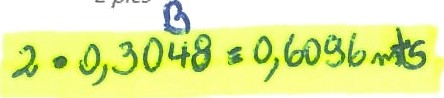 2 pies
B
2 • 0,3048 = 0,6096 mts